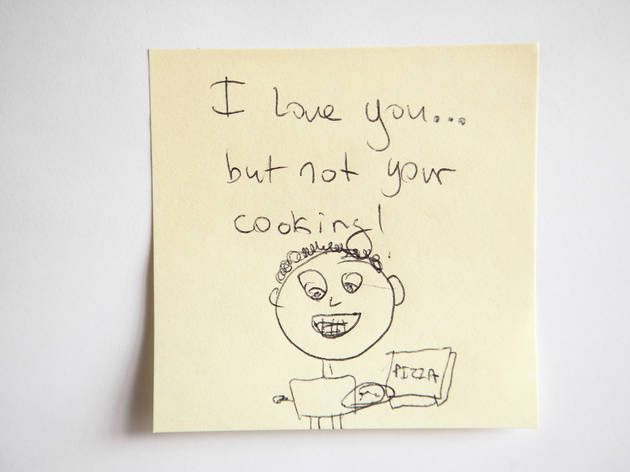 I love you...
but not your
cooking!
PIZZA